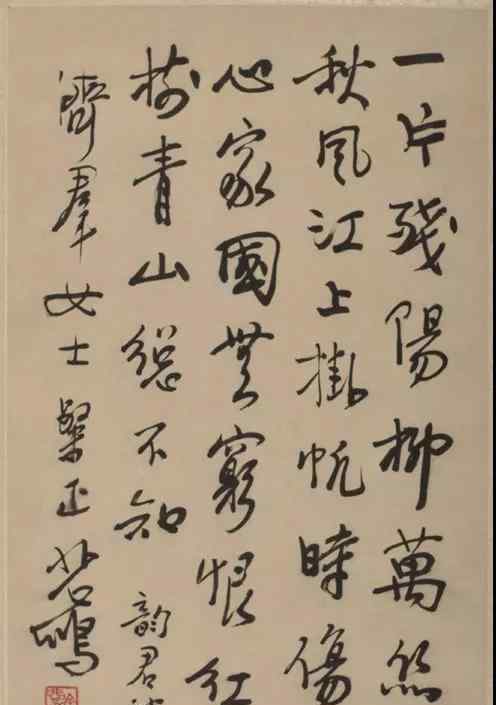 一片殘陽柳萬絲
秋風江上掛帆時傷
心家國無窮恨紅
樹青山總不知 韻君
濟羣女士粲正 悲鴻